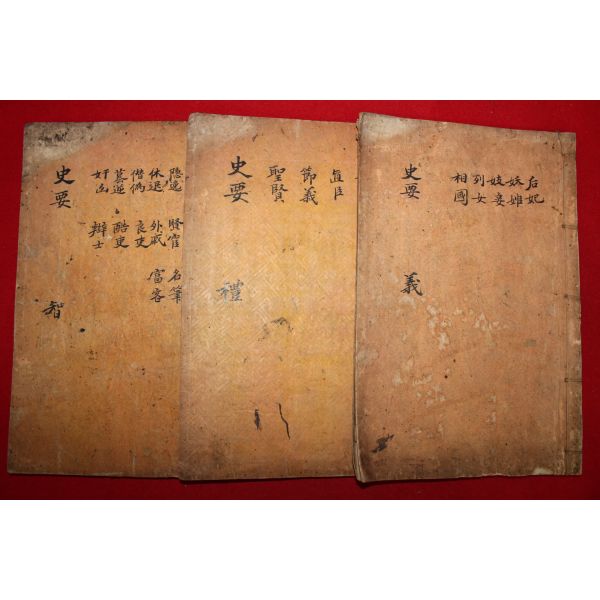 后妃
妓妾
列女
相國
史要 義
直臣
節義
聖賢
史要 禮
隱逸 賢宦 名筆
休退 外戚 富客
僭僞 良吏
簒逆 酷吏
奸凶 辯士
史要 智